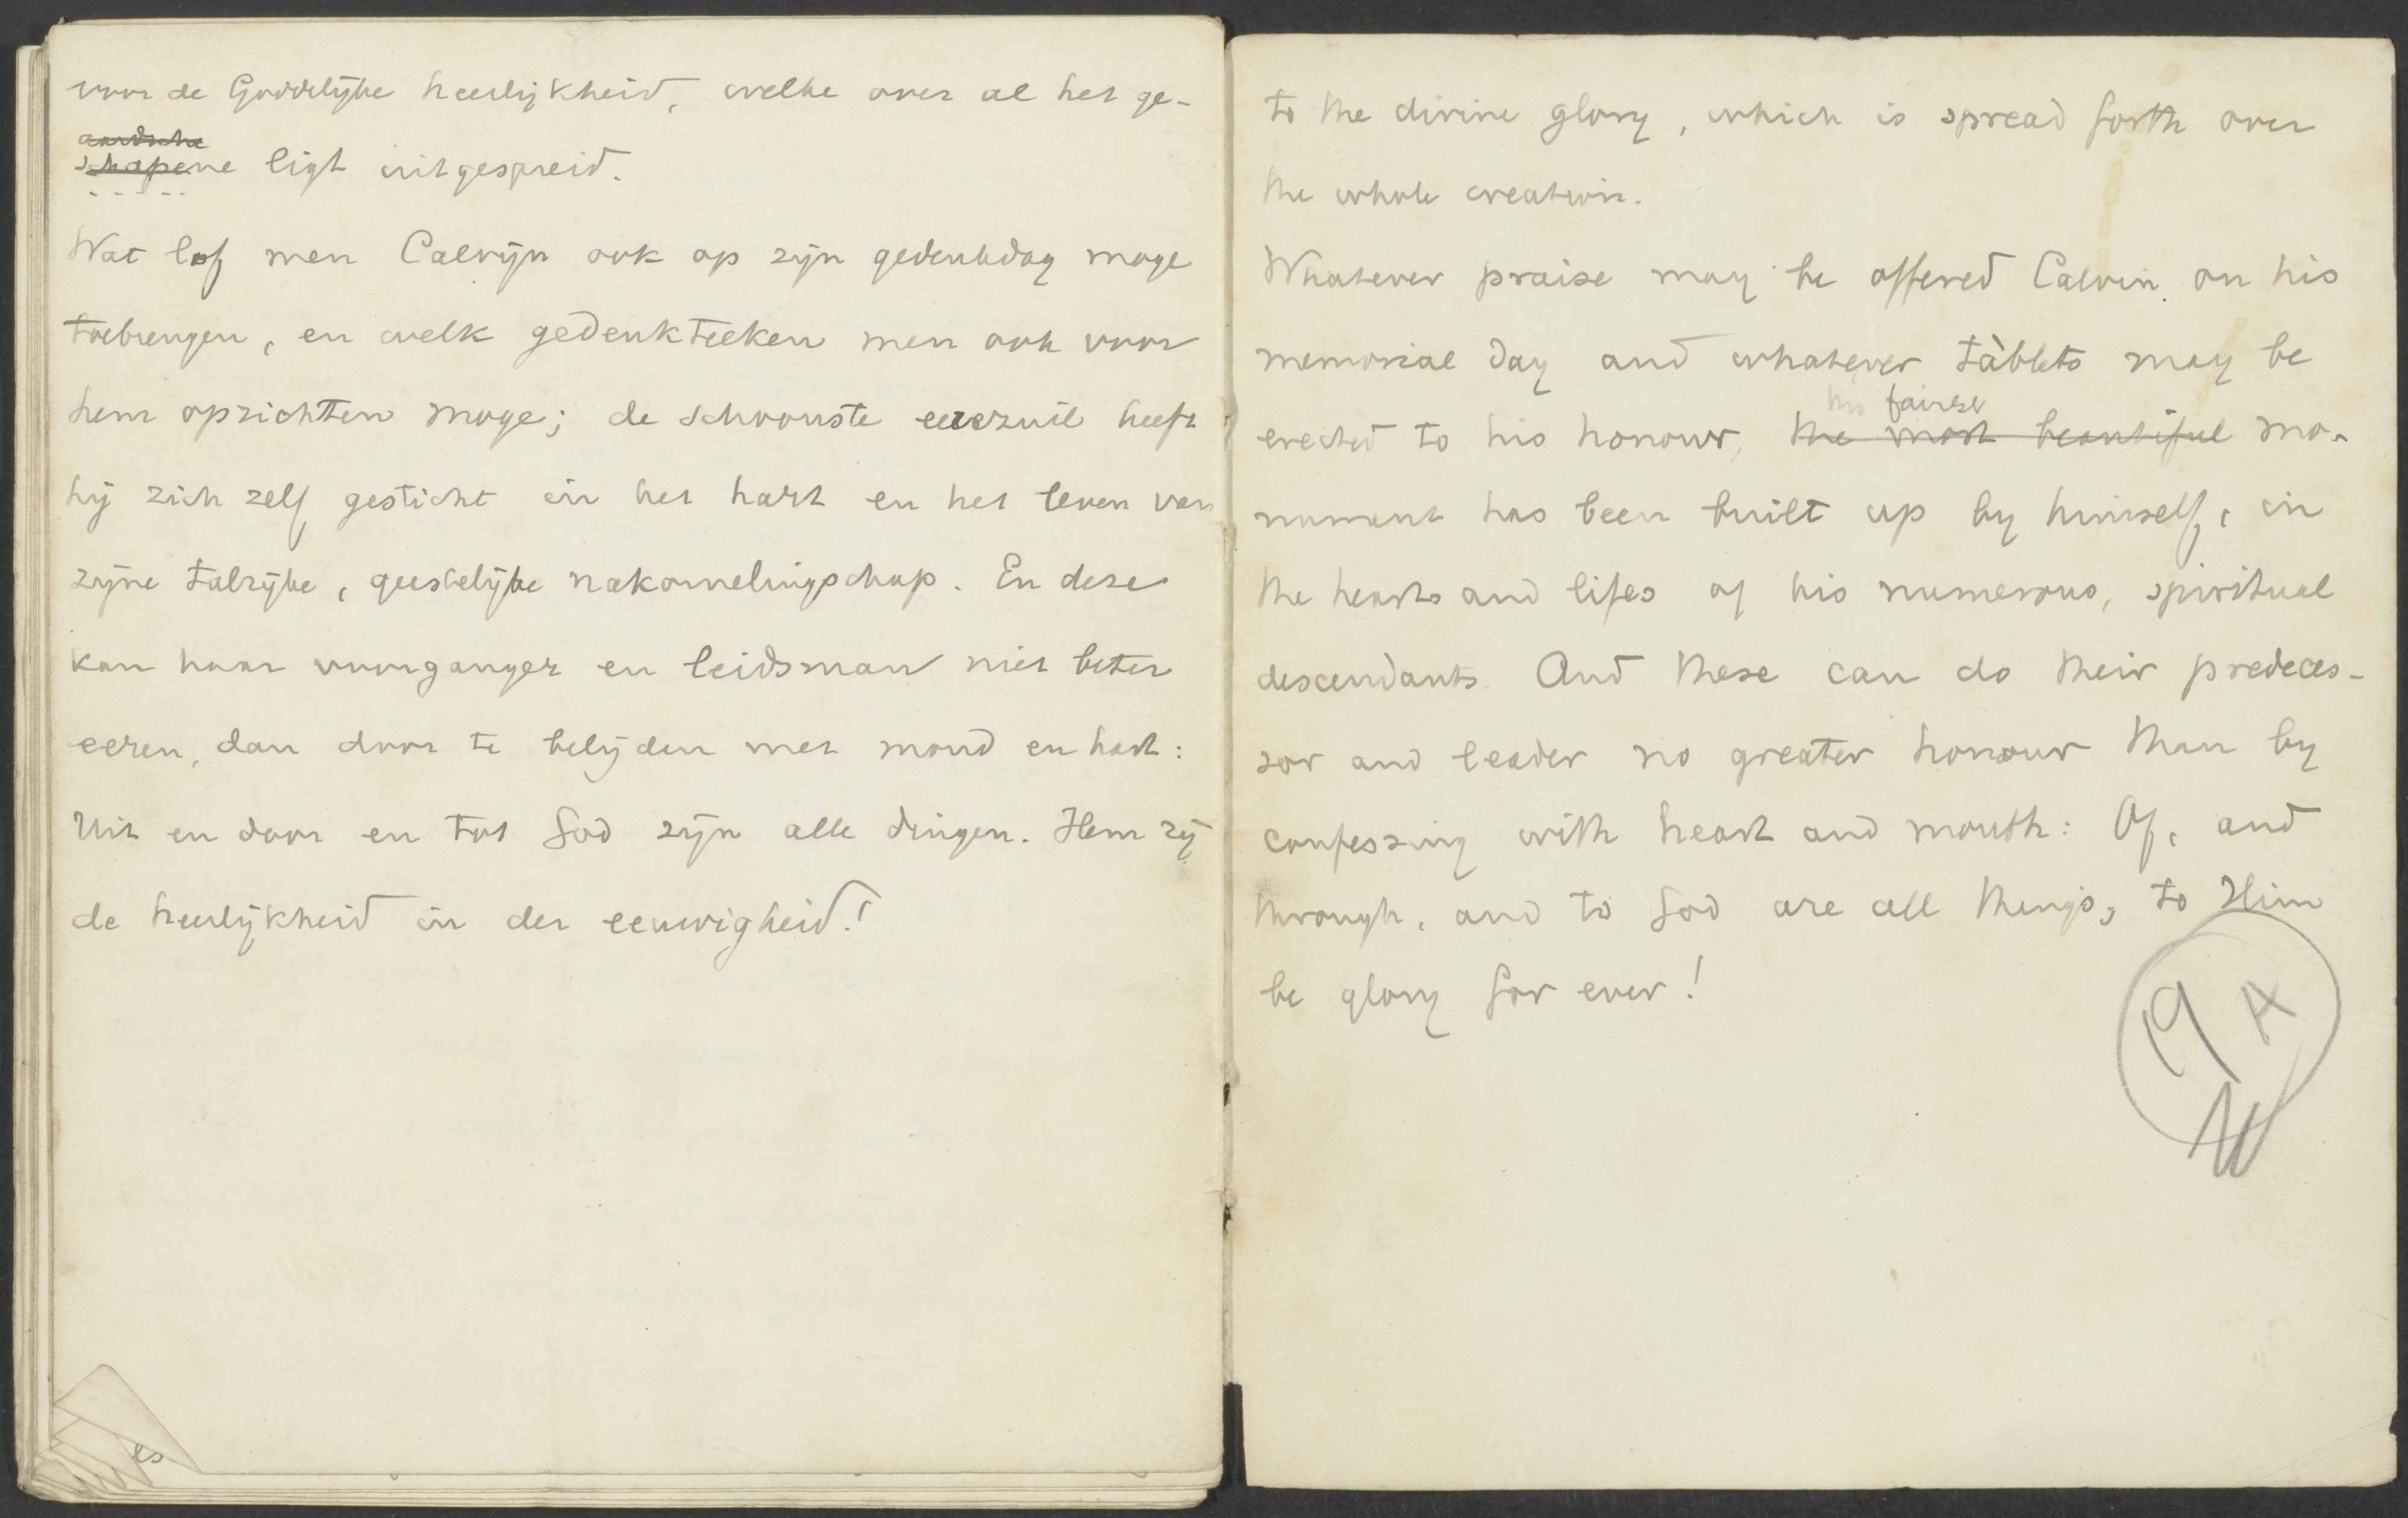 voor de Goddelijke heerlijkheid, welke over al het ge-
aardsche
schapene ligt uitgespreid.
Wat lof men Calvijn ook op zijn gedenkdag moge
toebrengen, en welk gedenkteeken men ook voor
hem oprichten moge; de schoonste eerezuil heeft
hij zich zelf gesticht in het hart en het leven van
zijne talrijke, geestelijke nakomelingschap. En deze
kan haar voorganger en leidsman niet beter
eeren, dan door te belijden met mond en hart:
Uit en door en tot God zijn alle dingen. Hem zij
de heerlijkheid in der eeuwigheid!
es
to the divine glory, which is spread forth over
the whole creation.
Whatever praise may be offered Calvin on his
memorial day and whatever tablets may be
his fairest
erected to his honour, the most beautiful mo-
nument has been built up by himself, in
the hearts and lifes of his numerous, spiritual
descendants. And these can do their predeces-
sor and leader no greater honour than by
confessing with heart and mouth: Of, and
through, and to God are all things; to Him
be glory for ever!
19